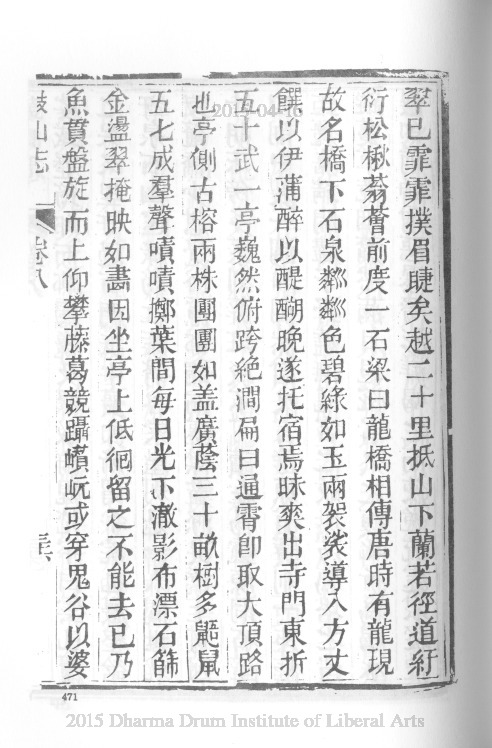 翠已霏霏撲眉睫矣越二十里抵山下蘭若徑道紆
衍松楸蓊薈前度一石梁曰龍橋相傳唐時有龍現
故名橋下石泉粼粼色碧綠如玉兩袈裟導入方丈
饌以伊蒲醉以醍醐晚遂托宿焉昧爽出寺門東折
五十武一亭巍然俯跨絕澗扁曰通霄即取大頂路
也亭側古榕兩株團團如盖廣蔭三十畝樹多鼯鼠
五七成羣聲嘖嘖擲葉間每日光下澈影布漂石篩
金盪翠掩映如畵因坐亭上低徊留之不能去已乃
魚貫盤旋而上仰攀藤葛競躡巑岏或穿鬼谷以婆
鼓山志 卷八
471
2014-04-16
2015 Dharma Drum Institute of Liberal Arts